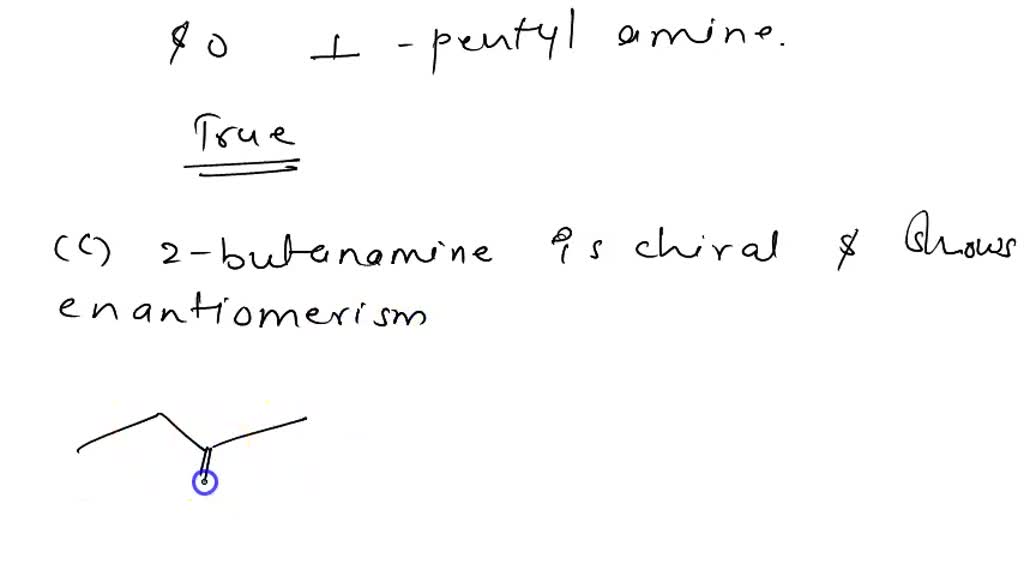 so 1 - pentyl amine.
True
(c) 2-butanamine is chiral & shows
enantiomerism